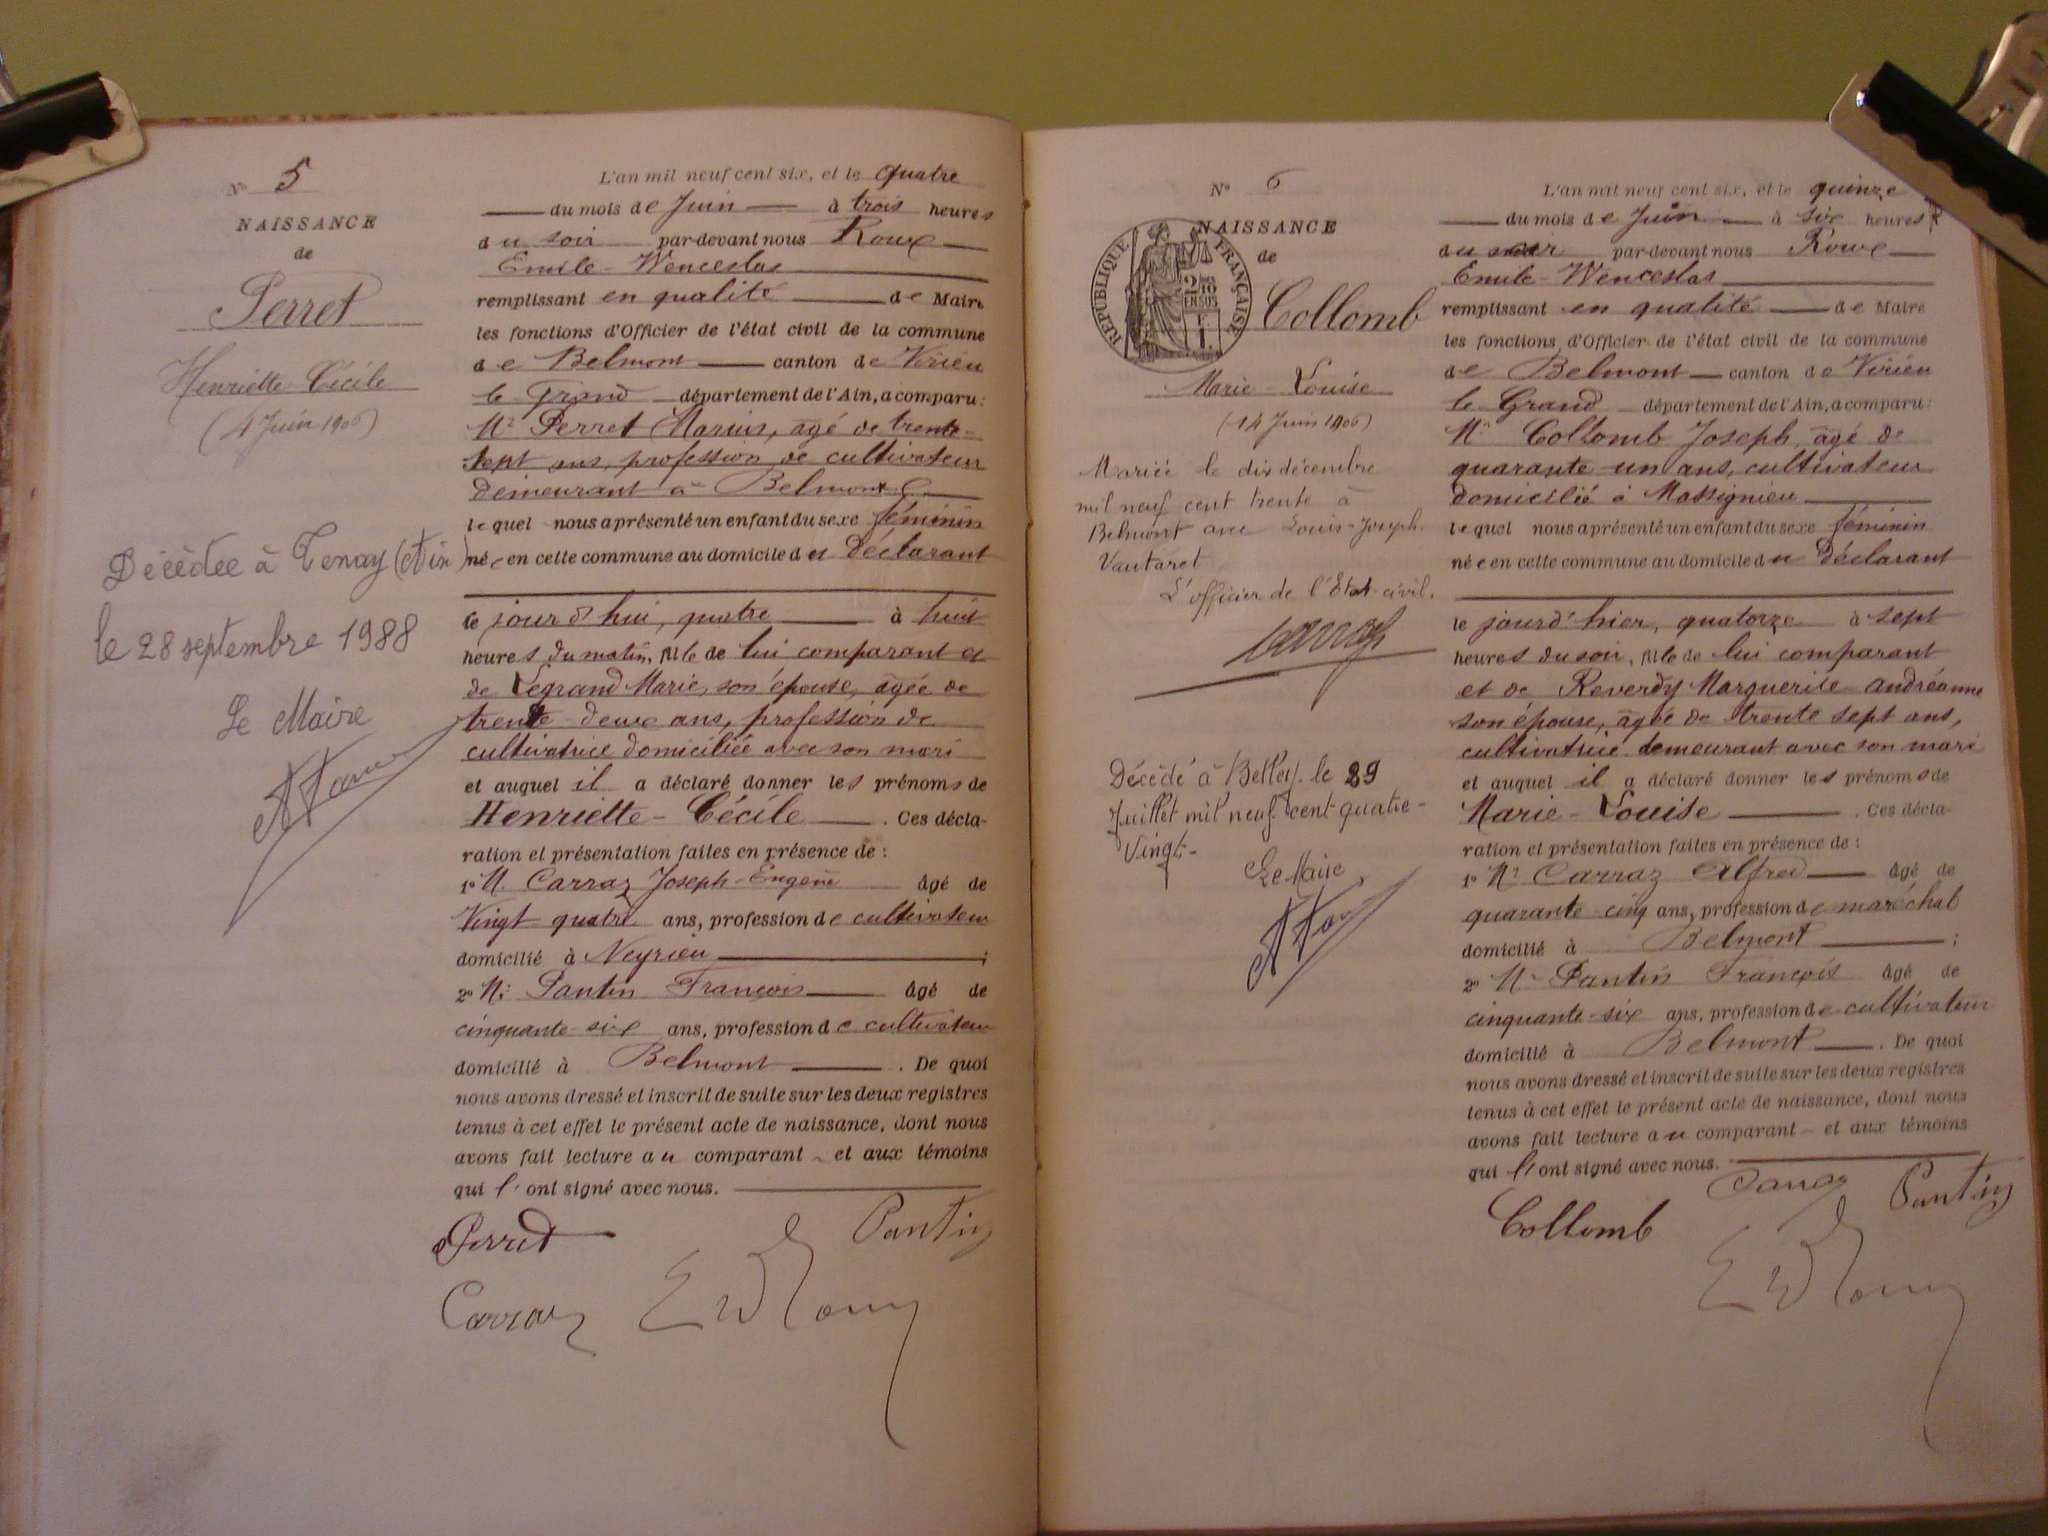 N° 5
NAISSANCE
de
Perret
Henriette-Cécile
(4 Juin 1906)
Décédée à Tenay (Ain)
le 28 septembre 1988
Le Maire
L'an mil neuf cent six, et le quatre
du mois de Juin à trois heures
du soir par-devant nous Roux
Emile-Wenceslas
remplissant en qualité de Maire
les fonctions d'Officier de l'état civil de la commune
de Belmont canton de Virieu
le Grand département de l'Ain, a comparu:
Mr Perret Marius, agé de trente-
sept ans, profession de cultivateur
demeurant à Belmont
lequel nous a présenté un enfant du sexe féminin
née en cette commune au domicile du déclarant
le jourd'hui, quatre à huit
heures du matin, fille de lui comparant et
de Legrand Marie, son épouse, agée de
trente-deux ans, profession de
cultivatrice domiciliée avec son mari
et auquel il a déclaré donner les prénoms de
Henriette-Cécile . Ces décla-
ration et présentation faites en présence de :
1° M. Carraz Joseph-Eugène âgé de
Vingt quatre ans, profession de cultivateur
domicilié à Neyrieu ;
2° Mr Pantin François âgé de
cinquante-six ans, profession de cultivateur
domicilié à Belmont . De quoi
nous avons dressé et inscrit de suite sur les deux registres
tenus à cet effet le présent acte de naissance, dont nous
avons fait lecture au comparant et aux témoins
qui l'ont signé avec nous.
Perret
Pantin
Carraz
E W Roux
N° 6
NAISSANCE
de
RÉPUBLIQUE FRANÇAISE
Collomb
Marie-Louise
(14 Juin 1906)
Mariée le dix décembre
mil neuf cent trente à
Belmont avec Louis-Joseph
Vautaret
L'officier de l'Etat-civil.
Décédé à Belley le 29
Juillet mil neuf cent quatre-
Vingt-
Le Maire
L'an mil neuf cent six, et le quinze
du mois de Juin à six heures
du soir par-devant nous Roux
Emile-Wenceslas
remplissant en qualité de Maire
les fonctions d'Officier de l'état civil de la commune
de Belmont canton de Virieu
le Grand département de l'Ain, a comparu:
Mr Collomb Joseph, agé de
quarante-un ans, cultivateur
domicilié à Massignieu
lequel nous a présenté un enfant du sexe féminin
née en cette commune au domicile du déclarant
le jourd'hier, quatorze à sept
heures du soir, fille de lui comparant
et de Reverdy Marguerite Andréanne
son épouse, agée de trente sept ans,
cultivatrice demeurant avec son mari
et auquel il a déclaré donner les prénoms de
Marie-Louise . Ces décla-
ration et présentation faites en présence de :
1° Mr Carraz Alfred âgé de
quarante-cinq ans, profession de maréchal
domicilié à Belmont ;
2° Mr Pantin François âgé de
cinquante-six ans, profession de cultivateur
domicilié à Belmont . De quoi
nous avons dressé et inscrit de suite sur les deux registres
tenus à cet effet le présent acte de naissance, dont nous
avons fait lecture au comparant et aux témoins
qui l'ont signé avec nous.
Carraz
Pantin
Collomb
E W Roux